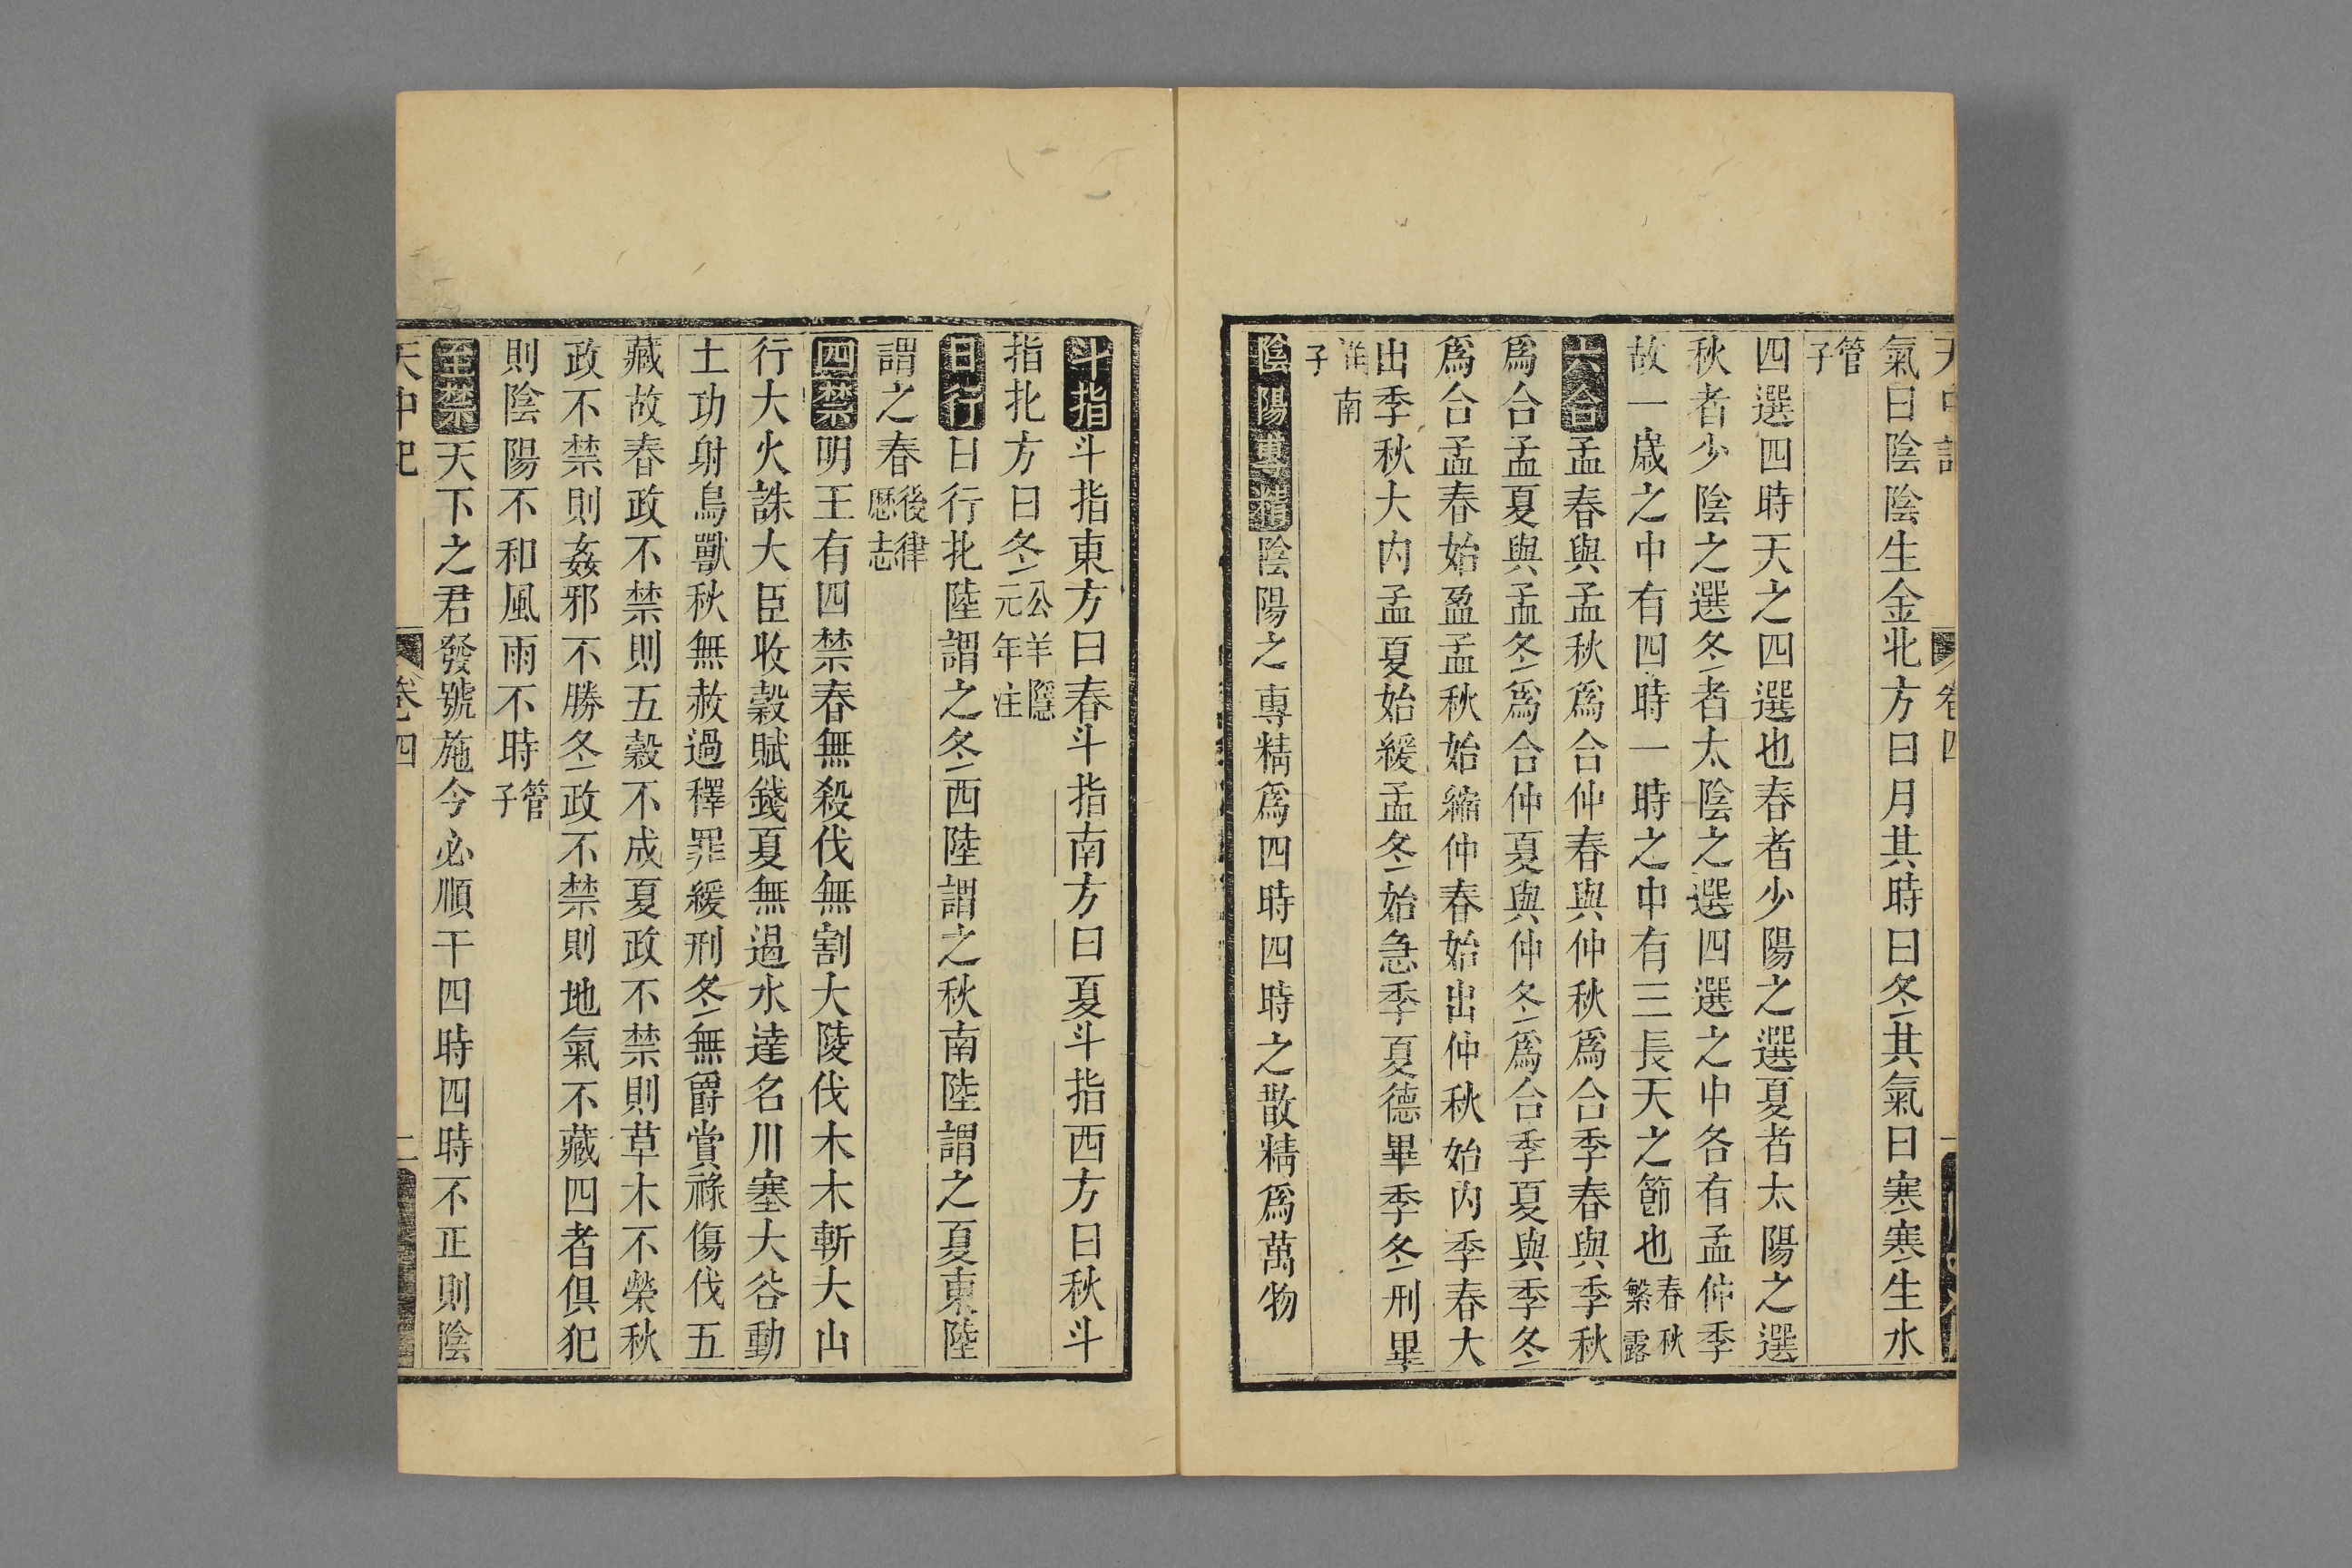 氣曰陰陰生金北方曰月其時曰冬其氣曰寒寒生水
管子
四選四時天之四選也春者少陽之選夏者太陽之選
秋者少陰之選冬者太陰之選四選之中各有孟仲季
故一歲之中有四時一時之中有三長天之節也春秋繁露
六合孟春與孟秋爲合仲春與仲秋爲合季春與季秋
爲合孟夏與孟冬爲合仲夏與仲冬爲合季夏與季冬
爲合孟春始盈孟秋始縮仲春始出仲秋始內季春大
出季秋大內孟夏始緩孟冬始急季夏德畢季冬刑畢
淮南子
陰陽專精陰陽之專精爲四時四時之散精爲萬物
斗指斗指東方曰春斗指南方曰夏斗指西方曰秋斗
指北方曰冬公羊隱元年注
日行日行北陸謂之冬西陸謂之秋南陸謂之夏東陸
謂之春後律歷志
四禁明王有四禁春無殺伐無割大陵伐木木斬大山
行大火誅大臣收穀賦錢夏無過水達名川塞大谷動
土功射鳥獸秋無赦過釋罪緩刑冬無爵賞祿傷伐五
藏故春政不禁則五穀不成夏政不禁則草木不榮秋
政不禁則姦邪不勝冬政不禁則地氣不藏四者俱犯
則陰陽不和風雨不時管子
至禁天下之君發號施令必順干四時四時不正則陰
天中記 卷四 二